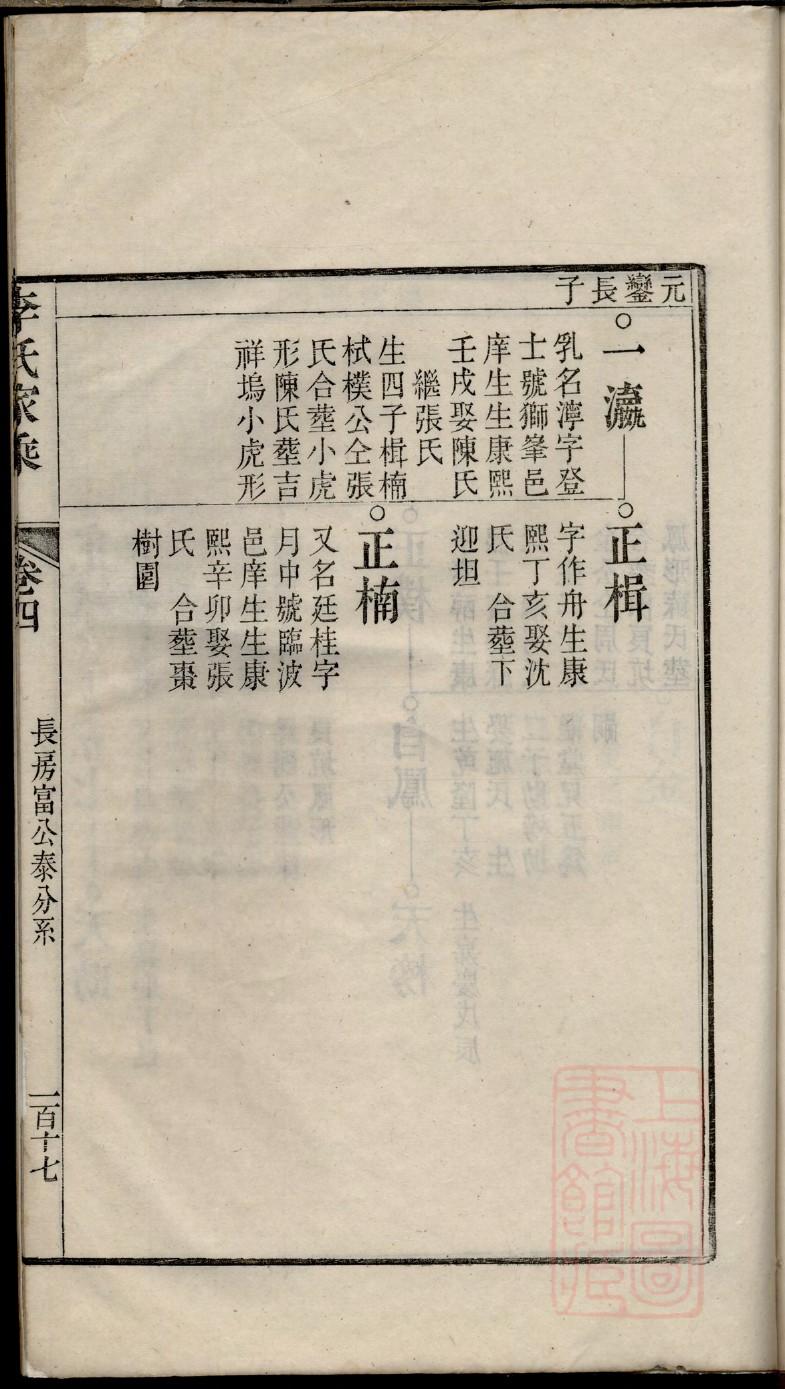 元鑾長子
一瀛
乳名濘字登
士號獅峯邑
庠生生康熙
壬戌娶陳氏
繼張氏
生四子楫楠
栻樸公仝張
氏合塟小虎
形陳氏塟吉
祥塢小虎形
正楫
字作舟生康
熙丁亥娶沈
氏　合塟下
迎坦
正楠
又名廷桂字
月中號臨波
邑庠生生康
熙辛卯娶張
氏　合塟棗
樹園
李氏家乘
卷四
長房富公泰分系
一百十七
上海圖
書館藏